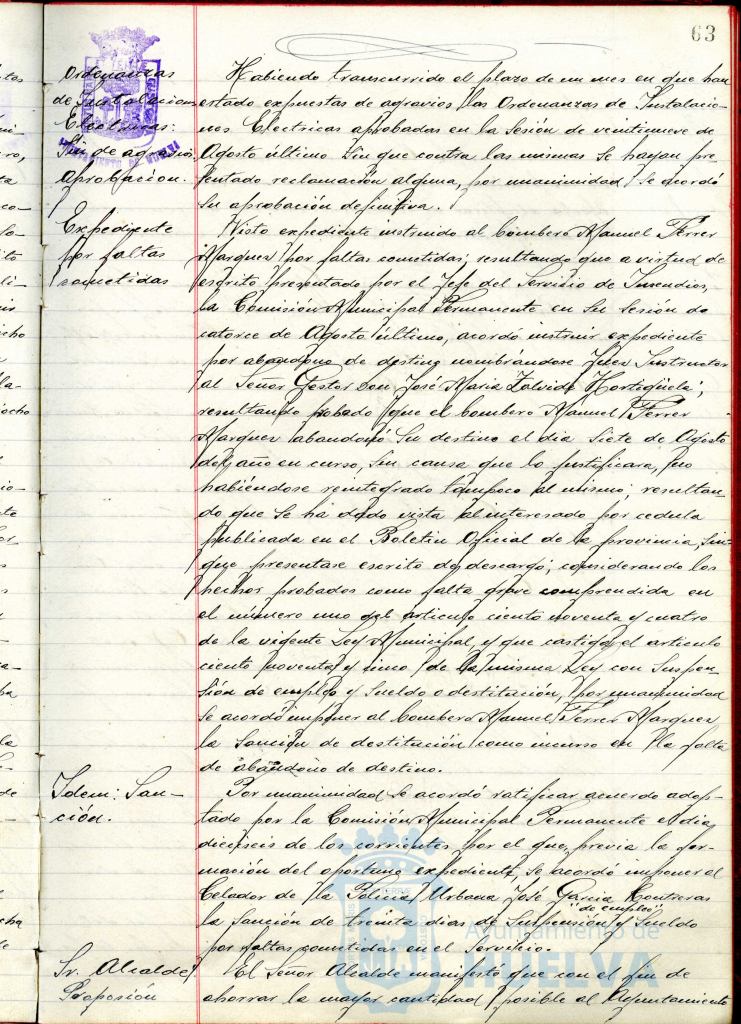 63
Ordenanzas
de Instalaciones
Eléctricas:
Fin de agravios
Aprobación.
Habiendo transcurrido el plazo de un mes en que han
estado expuestas de agravios las Ordenanzas de Instalacio-
nes Electricas aprobadas en la Sesión de veintinueve de
Agosto último sin que contra las mismas se hayan pre-
sentado reclamación alguna, por unanimidad se acordó
su aprobación definitiva.
Expediente
por faltas
cometidas
Visto expediente instruido al bombero Manuel Ferrer
Marquez por faltas cometidas; resultando que a virtud de
escrito presentado por el Jefe del Servicio de Incendios,
la Comisión Municipal Permanente en su Sesión de
catorce de Agosto último, acordó instruir expediente
por abandono de destino nombrándose Juez Instructor
al Señor Gestor Don José Maria Zalvide Hortigüela;
resultando probado que el bombero Manuel Ferrer
Marquez abandonó su destino el dia siete de Agosto
del año en curso, sin causa que lo justificara, no
habiéndose reintegrado tampoco al mismo; resultan-
do que se ha dado vista al interesado por cedula
publicada en el Boletin Oficial de la provincia, sin-
que presentase escrito de descargo; considerando los
hechos probados como falta grave comprendida en
el número uno del articulo ciento noventa y cuatro
de la vigente Ley Municipal, y que castiga el articulo
ciento noventa y cinco de la misma Ley con suspen-
sión de empleo y sueldo o destitución, por unanimidad
se acordó imponer al bombero Manuel Ferrer Marquez
la Sanción de destitución como incurso en la falta
de abandono de destino.
Idem: San-
ción.
Por unanimidad se acordó ratificar acuerdo adop-
tado por la Comisión Municipal Permanente el dia
dieciseis de los corrientes por el que, previa la for-
mación del oportuno expediente, se acordó imponer al
Celador de la Policia Urbana José Garcia Contreras
"de empleo"
la Sanción de treinta dias de Suspensión y Sueldo
por faltas cometidas en el Servicio.
Sr. Alcalde
Proposión
El Señor Alcalde manifestó que con el fin de
ahorrar la mayor cantidad posible al Ayuntamiento
Ayuntamiento de
HUELVA